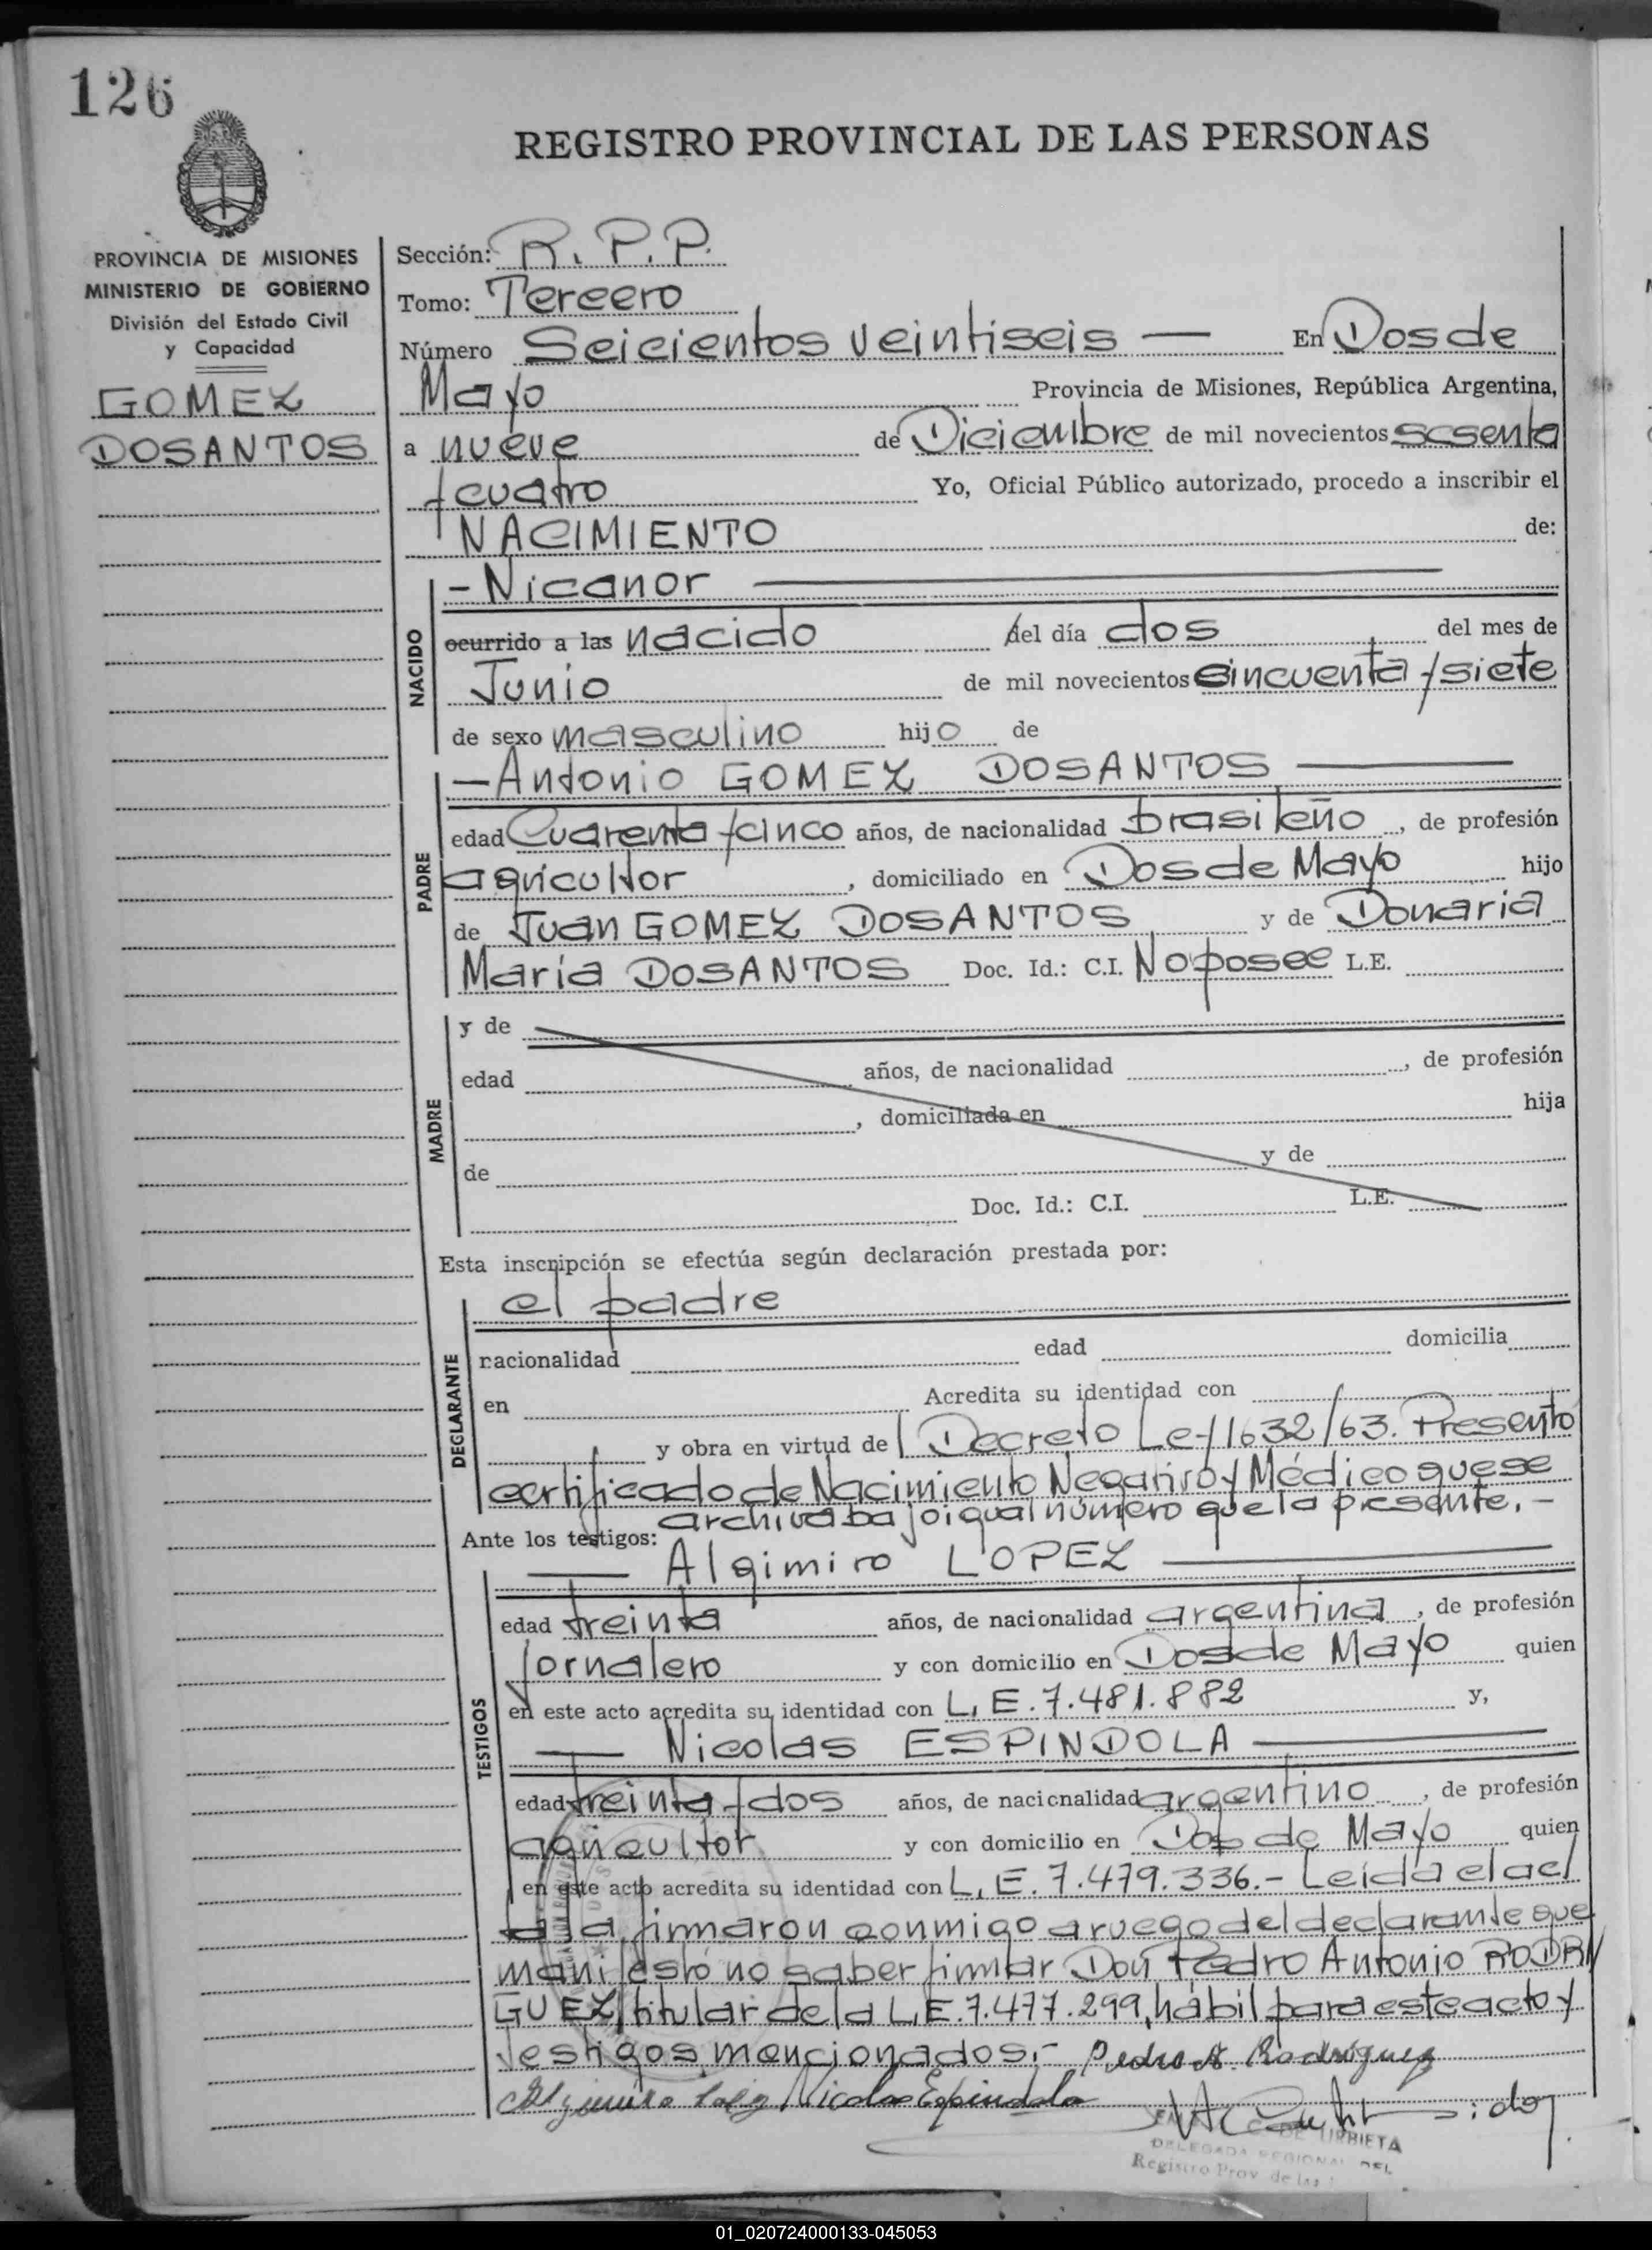 126
REGISTRO PROVINCIAL DE LAS PERSONAS
PROVINCIA DE MISIONES
MINISTERIO DE GOBIERNO
División del Estado Civil
y Capacidad
GOMEZ
DOSANTOS
Sección: R.P.P.
Tomo: Tercero
Número Seicientos veintiseis — En Dos de
Mayo Provincia de Misiones, República Argentina,
a nueve de Diciembre de mil novecientos sesenta
y cuatro Yo, Oficial Público autorizado, procedo a inscribir el
NACIMIENTO de:
NACIDO
- Nicanor
ocurrido a las nacido del día dos del mes de
Junio de mil novecientos cincuenta y siete
de sexo masculino hijo de
PADRE
— Antonio GOMEZ DOSANTOS —
edad Cuarenta y cinco años, de nacionalidad brasileño, de profesión
agricultor, domiciliado en Dos de Mayo hijo
de Juan GOMEZ DOSANTOS y de Donaria
María DOSANTOS Doc. Id.: C.I. No posee L.E.
MADRE
y de
edad años, de nacionalidad , de profesión
, domiciliada en hija
de y de
Doc. Id.: C.I. L.E.
Esta inscripción se efectúa según declaración prestada por:
DECLARANTE
el padre
nacionalidad edad domicilia
en Acredita su identidad con
y obra en virtud de l Decreto Ley 1632/63. Presentó
certificado de Nacimiento Negativo y Médico que se
archiva bajo igual número que la presente.-
Ante los testigos:
TESTIGOS
— Algimiro LOPEZ —
edad treinta años, de nacionalidad argentina, de profesión
jornalero y con domicilio en Dos de Mayo quien
en este acto acredita su identidad con L.E. 7.481.882 y,
— Nicolas ESPINDOLA —
edad treinta y dos años, de nacionalidad argentino, de profesión
agricultor y con domicilio en Dos de Mayo quien
en este acto acredita su identidad con L.E. 7.479.336.- Leída el ac/
ta, firmaron conmigo a ruego del declarante que
manifestó no saber firmar Don Pedro Antonio RODRI/
GUEZ, titular de la L.E. 7.477.299, hábil para este acto y
testigos mencionados.- Pedro A. Rodríguez
Algimiro López Nicolas Espindola
DE URBIETA
DELEGADA REGIONAL DEL
Registro Prov. de las
01_020724000133-045053